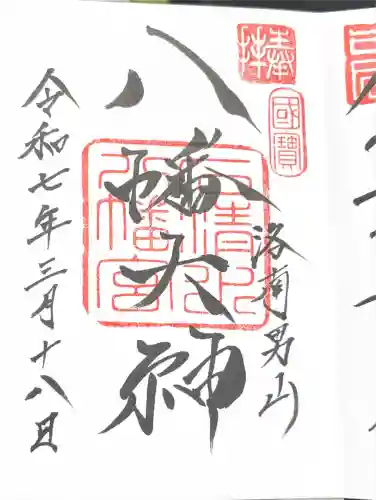 奉拝
國寶
洛南男山
八幡大神
石清水
八幡宮
令和七年三月十八日